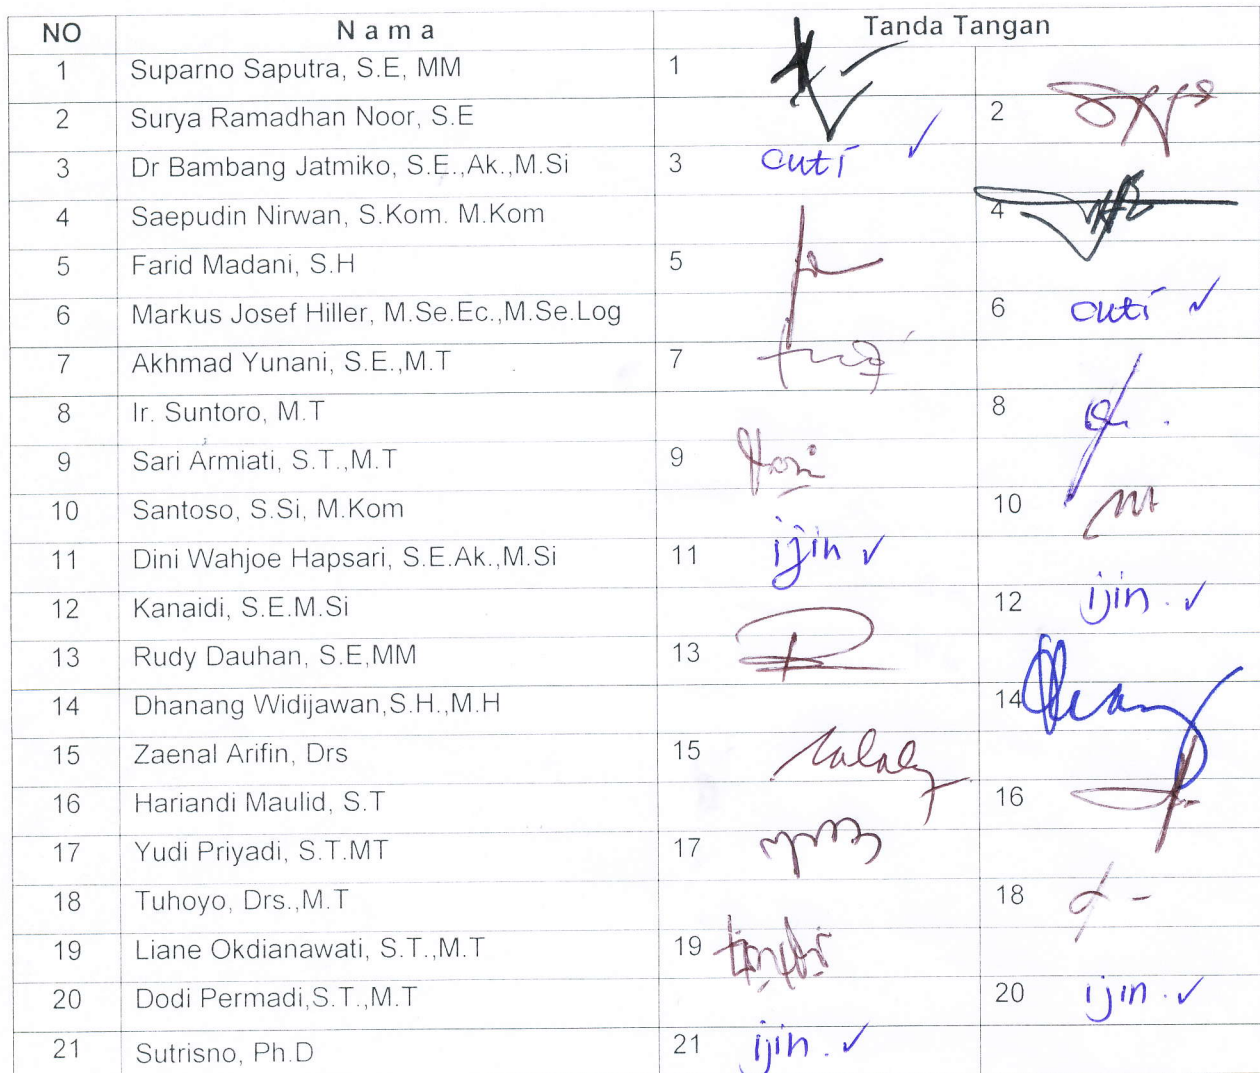 NO N a m a Tanda Tangan
1 Suparno Saputra, S.E, MM 1
2 Surya Ramadhan Noor, S.E 2
3 Dr Bambang Jatmiko, S.E.,Ak.,M.Si 3 cuti
4 Saepudin Nirwan, S.Kom. M.Kom 4
5 Farid Madani, S.H 5
6 Markus Josef Hiller, M.Se.Ec.,M.Se.Log 6 cuti
7 Akhmad Yunani, S.E.,M.T 7
8 Ir. Suntoro, M.T 8
9 Sari Armiati, S.T.,M.T 9
10 Santoso, S.Si, M.Kom 10
11 Dini Wahjoe Hapsari, S.E.Ak.,M.Si 11 ijin
12 Kanaidi, S.E.M.Si 12 ijin.
13 Rudy Dauhan, S.E,MM 13
14 Dhanang Widijawan,S.H.,M.H 14
15 Zaenal Arifin, Drs 15
16 Hariandi Maulid, S.T 16
17 Yudi Priyadi, S.T.MT 17
18 Tuhoyo, Drs.,M.T 18
19 Liane Okdianawati, S.T.,M.T 19
20 Dodi Permadi,S.T.,M.T 20 ijin.
21 Sutrisno, Ph.D 21 ijin.